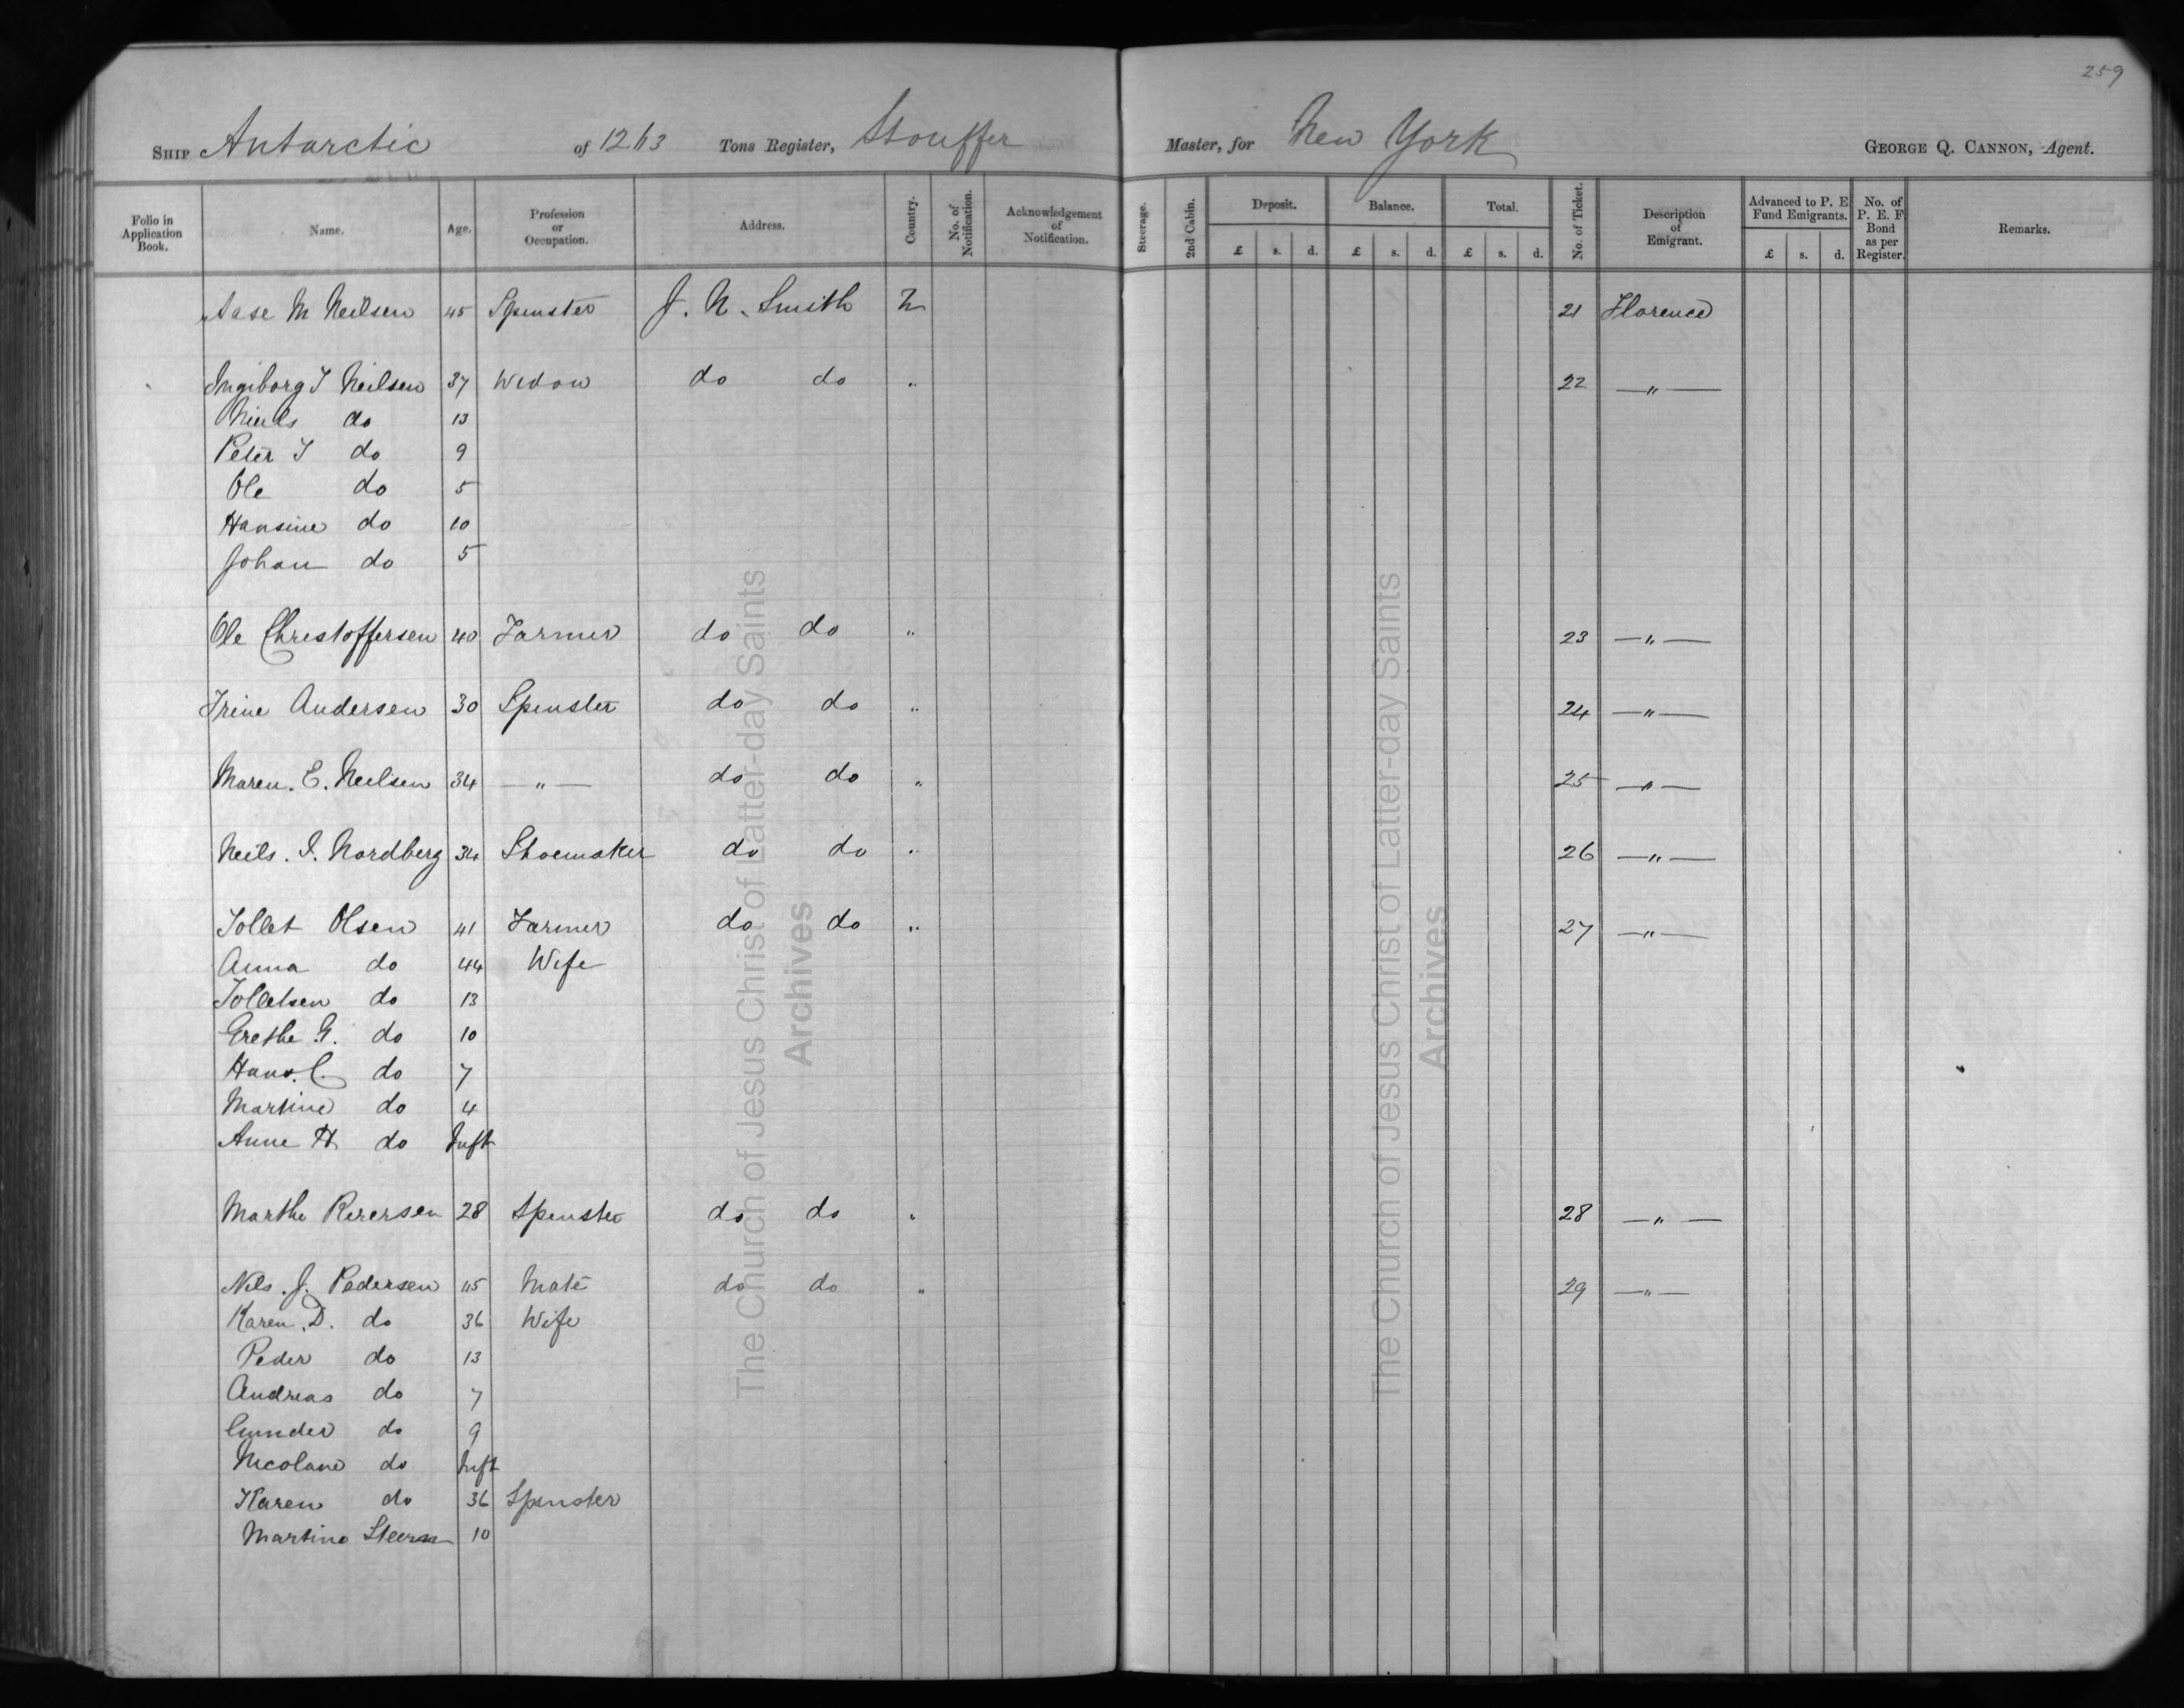 259
SHIP Antarctic of 1263 Tons Register, Stouffer Master, for New York GEORGE Q. CANNON, Agent.
Folio in Application Book. Name. Age. Profession or Occupation. Address. Country. No. of Notification. Acknowledgement of Notification. Steerage. 2nd Cabin. Deposit. £ s. d. Balance. £ s. d. Total. £ s. d. No. of Ticket. Description of Emigrant. Advanced to P. E Fund Emigrants. £ s. d. No. of P. E. F Bond as per Register. Remarks.
Aase M Neilsen 45 Spinster J. N. Smith 21 Florence
Ingiborg I Neilsen 37 Widow do do " 22 —"—
Niels do 13
Peter I do 9
Ole do 5
Hansine do 10
Johan do 5
Ole Christoffersen 40 Farmer do do " 23 —"—
Trine Andersen 30 Spinster do do " 24 —"—
Maren. E. Neilsen 34 —"— do do " 25 —"—
Neils. I. Nordberg 34 Shoemaker do do " 26 —"—
Tollet Olsen 41 Farmer do do " 27 —"—
Anna do 44 Wife
Tolletsen do 13
Grethe G. do 10
Hans. C. do 7
Martine do 4
Anne H do Inft
Marthe Rerersen 28 Spinster do do " 28 —"—
Nils. J. Pedersen 45 Mate do do " 29 —"—
Karen. D. do 36 Wife
Peder do 13
Andreas do 7
Gunder do 9
Nicoline do Inft
Karen do 36 Spinster
Martine 10
The Church of Jesus Christ of Latter-day Saints
Archives
The Church of Jesus Christ of Latter-day Saints
Archives